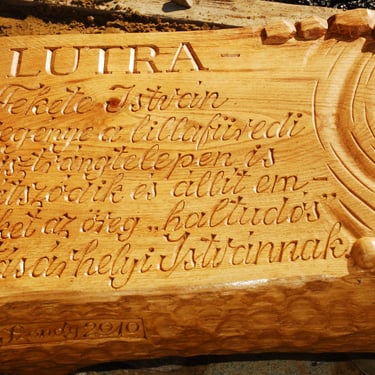 LUTRA -
Fekete István
egénye a lillafüredi
isztrángtelepen is
tűsződik és állít em-
ket az öreg „haltudós"
ásárhelyi Istvánnak.
2010